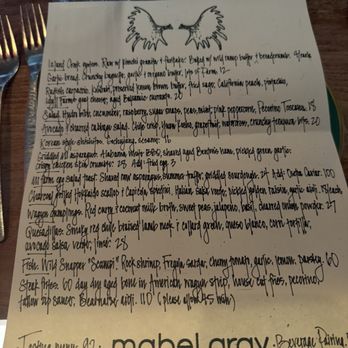 Island Creek oysters. Raw w/ kimchi granita & Broiled w/ wild ramp butter & breadcrumbs. 4 each
Garlic bread. Crunchy baguette, garlic & oregano butter, lots of Parm. 12
Radish carpaccio, kohlrabi, preserved lemon, brown butter, fried sage, California peach, pistachio,
goat cheese, aged balsamic caramel. 20
Salad. Hydro bibb, cucumber, raspberry, sugar snaps, peas, mint, pink peppercorn, Pecorino Toscano. 18
Avocado & seared calamari salad. Chili crisp, yuzu kosho, grapefruit, watercress, crunchy tempura bits. 20
Korean style sashimi. Gochujang, sesame. 16
Griddled asparagus. Alabama white BBQ, shaved aged Benton's ham, pickled green garlic,
crispy chicken skin crumbs. 25 Add: fried egg. 3
farm egg salad toast. Shaved raw asparagus, summer truffle, griddled sourdough. 24 Add: Osetra Caviar. 100
Charcoal grilled Hokkaido scallop & Capicola, Italian salsa verde, pickled golden raisins, garlic aioli. 19 each
Wagyu dumplings. Red curry & coconut milk broth, sweet peas, jalapeno, basil, charred onion powder. 27
Quesadillas. Smoky red chile braised lamb neck & collard green, queso blanco, corn tortilla,
avocado salsa verde, lime. 28
Fish. Wild Snapper "Scampi". Rock shrimp, Fregola sarda, cherry tomato, garlic, lemon, parsley. 60
Steak frites. 60 day dry aged bone in American wagyu strip, house cut fries, pecorino,
tallow dip sauce, Bearnaise aioli. 110 (please allow 45 min)
Tasting menu 92. mabel gray. Beverage Pairing.